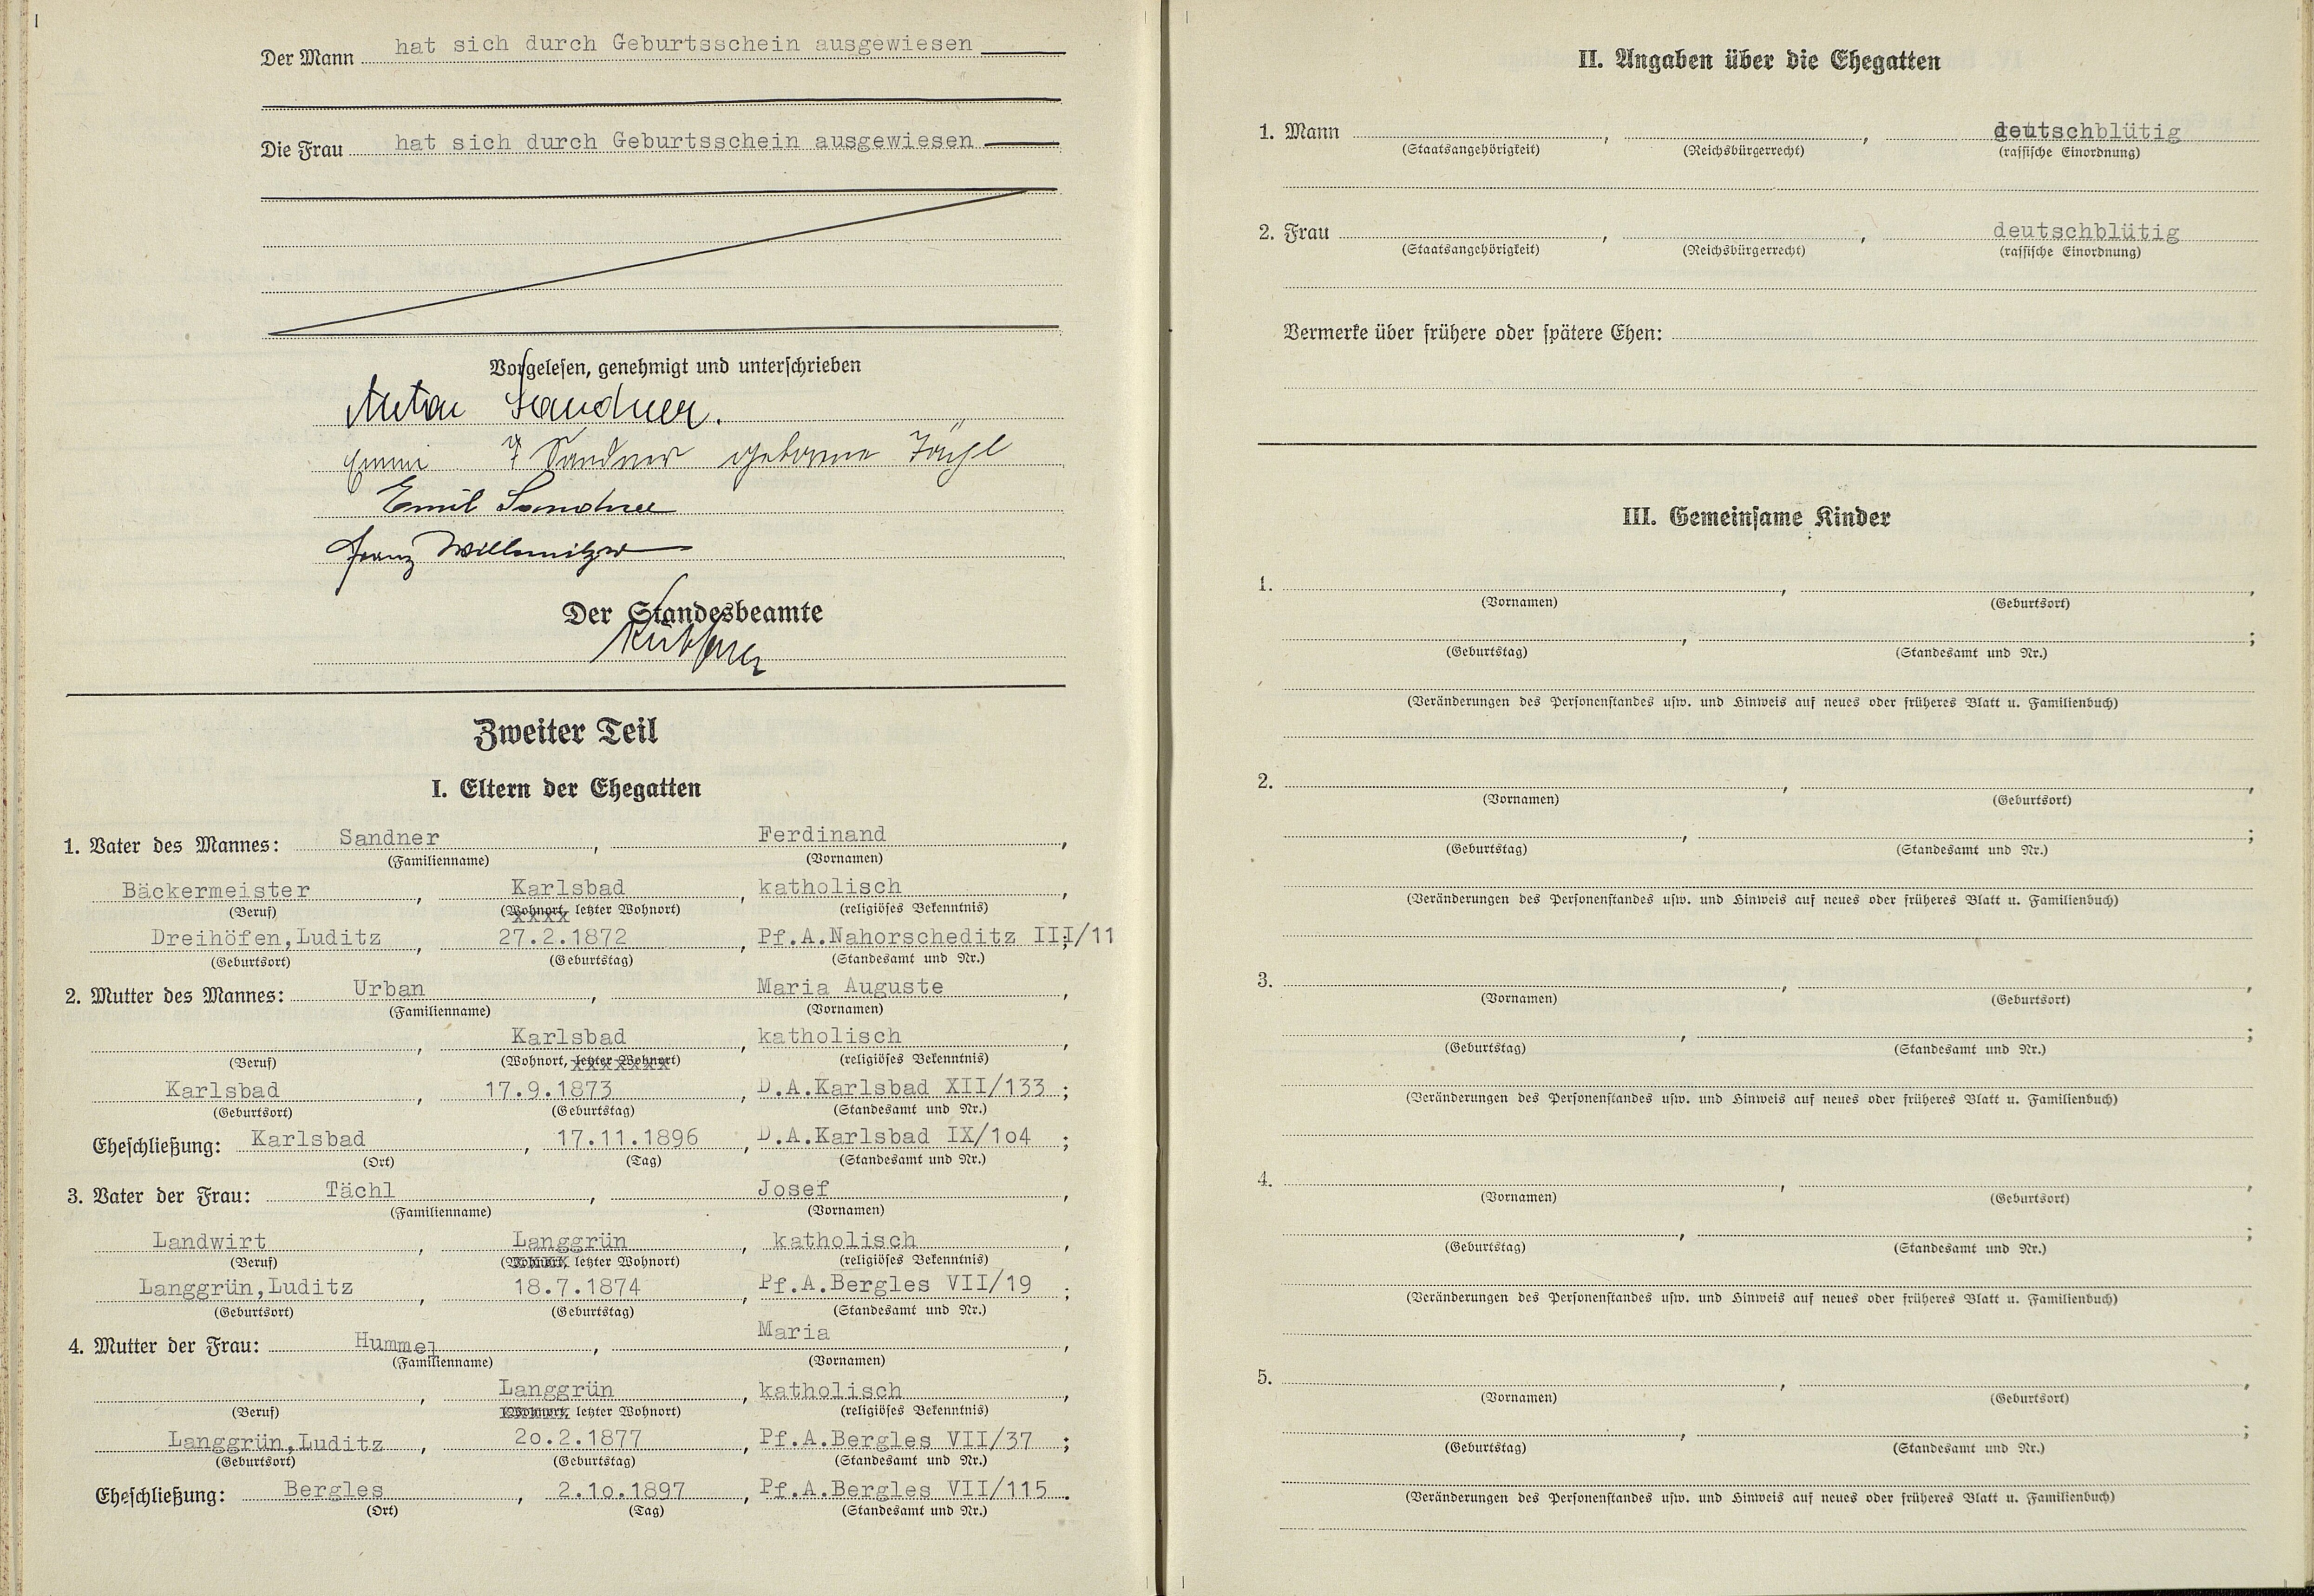 Der Mann hat sich durch Geburtsschein ausgewiesen
Die Frau hat sich durch Geburtsschein ausgewiesen
Vorgelesen, genehmigt und unterschrieben
Anton Sandner.
Emmi Sandner geborene Tächl
Emil Sandner
Franz Willomitzer
Der Standesbeamte
Zweiter Teil
I. Eltern der Ehegatten
1. Vater des Mannes: Sandner, Ferdinand,
(Familienname) (Vornamen)
Bäckermeister, Karlsbad, katholisch,
(Beruf) (Wohnort, letzter Wohnort) (religiöses Bekenntnis)
Dreihöfen,Luditz, 27.2.1872, Pf.A.Nahorscheditz III/11;
(Geburtsort) (Geburtstag) (Standesamt und Nr.)
2. Mutter des Mannes: Urban, Maria Auguste,
(Familienname) (Vornamen)
, Karlsbad, katholisch,
(Beruf) (Wohnort, letzter Wohnort) (religiöses Bekenntnis)
Karlsbad, 17.9.1873, D.A.Karlsbad XII/133;
(Geburtsort) (Geburtstag) (Standesamt und Nr.)
Eheschließung: Karlsbad, 17.11.1896, D.A.Karlsbad IX/1o4;
(Ort) (Tag) (Standesamt und Nr.)
3. Vater der Frau: Tächl, Josef,
(Familienname) (Vornamen)
Landwirt, Langgrün, katholisch,
(Beruf) (Wohnort, letzter Wohnort) (religiöses Bekenntnis)
Langgrün,Luditz, 18.7.1874, Pf.A.Bergles VII/19;
(Geburtsort) (Geburtstag) (Standesamt und Nr.)
4. Mutter der Frau: Hummel, Maria,
(Familienname) (Vornamen)
, Langgrün, katholisch,
(Beruf) (Wohnort, letzter Wohnort) (religiöses Bekenntnis)
Langgrün,Luditz, 2o.2.1877, Pf.A.Bergles VII/37;
(Geburtsort) (Geburtstag) (Standesamt und Nr.)
Eheschließung: Bergles, 2.1o.1897, Pf.A.Bergles VII/115.
(Ort) (Tag) (Standesamt und Nr.)
II. Angaben über die Ehegatten
1. Mann , , deutschblütig
(Staatsangehörigkeit) (Reichsbürgerrecht) (rassische Einordnung)
2. Frau , , deutschblütig
(Staatsangehörigkeit) (Reichsbürgerrecht) (rassische Einordnung)
Vermerke über frühere oder spätere Ehen:
III. Gemeinsame Kinder
1. , ,
(Vornamen) (Geburtsort)
, ;
(Geburtstag) (Standesamt und Nr.)
(Veränderungen des Personenstandes usw. und Hinweis auf neues oder früheres Blatt u. Familienbuch)
2. , ,
(Vornamen) (Geburtsort)
, ;
(Geburtstag) (Standesamt und Nr.)
(Veränderungen des Personenstandes usw. und Hinweis auf neues oder früheres Blatt u. Familienbuch)
3. , ,
(Vornamen) (Geburtsort)
, ;
(Geburtstag) (Standesamt und Nr.)
(Veränderungen des Personenstandes usw. und Hinweis auf neues oder früheres Blatt u. Familienbuch)
4. , ,
(Vornamen) (Geburtsort)
, ;
(Geburtstag) (Standesamt und Nr.)
(Veränderungen des Personenstandes usw. und Hinweis auf neues oder früheres Blatt u. Familienbuch)
5. , ,
(Vornamen) (Geburtsort)
, ;
(Geburtstag) (Standesamt und Nr.)
(Veränderungen des Personenstandes usw. und Hinweis auf neues oder früheres Blatt u. Familienbuch)